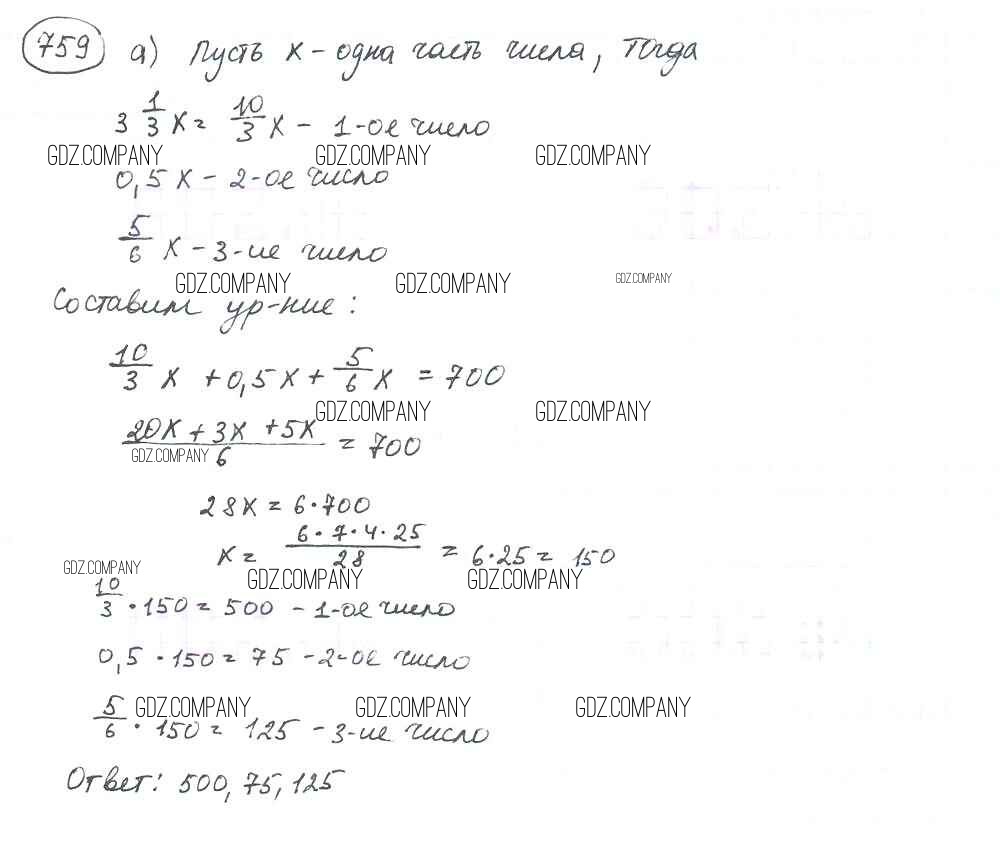 759 а) Пусть х - одна часть числа, тогда
3 1/3 х = 10/3 х - 1-ое число
GDZ.COMPANY GDZ.COMPANY GDZ.COMPANY
0,5 х - 2-ое число
5/6 х - 3-ие число
GDZ.COMPANY GDZ.COMPANY GDZ.COMPANY
Составим ур-ние:
10/3 х + 0,5 х + 5/6 х = 700
GDZ.COMPANY GDZ.COMPANY
(20х + 3х + 5х)/6 = 700
GDZ.COMPANY
28х = 6·700
х = (6·7·4·25)/28 = 6·25 = 150
GDZ.COMPANY GDZ.COMPANY GDZ.COMPANY
10/3 · 150 = 500 - 1-ое число
0,5 · 150 = 75 - 2-ое число
GDZ.COMPANY GDZ.COMPANY GDZ.COMPANY
5/6 · 150 = 125 - 3-ие число
Ответ: 500, 75, 125